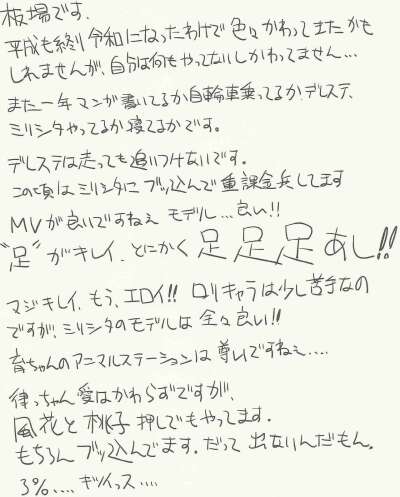 板場です.
平成も終り令和になったわけで色々かわってきたかも
しれませんが、自分は何もやってないしかわってません…
また一年マンガ書いてるか自輪車乗ってるか、デレステ、
ミリシタやってるか寝てるかです。
デレステは走っても追いつけないです.
この頃はミリシタにブッ込んで重課金兵してます
MVが良いですねぇ モデル…良い!!
"足"がキレイ.とにかく足足足あし!!
マジキレイ、もう、エロイ!! ロリキャラは少し苦手なの
ですが、ミリシタのモデルは全々良い!!
育ちゃんのアニマルステーションは尊いですねぇ….
律っちゃん愛はかわらずですが、
風花と桃子押しでもやってます.
もちろんブッ込んでます.だって出ないんだもん.
3%…. ギツイっス….